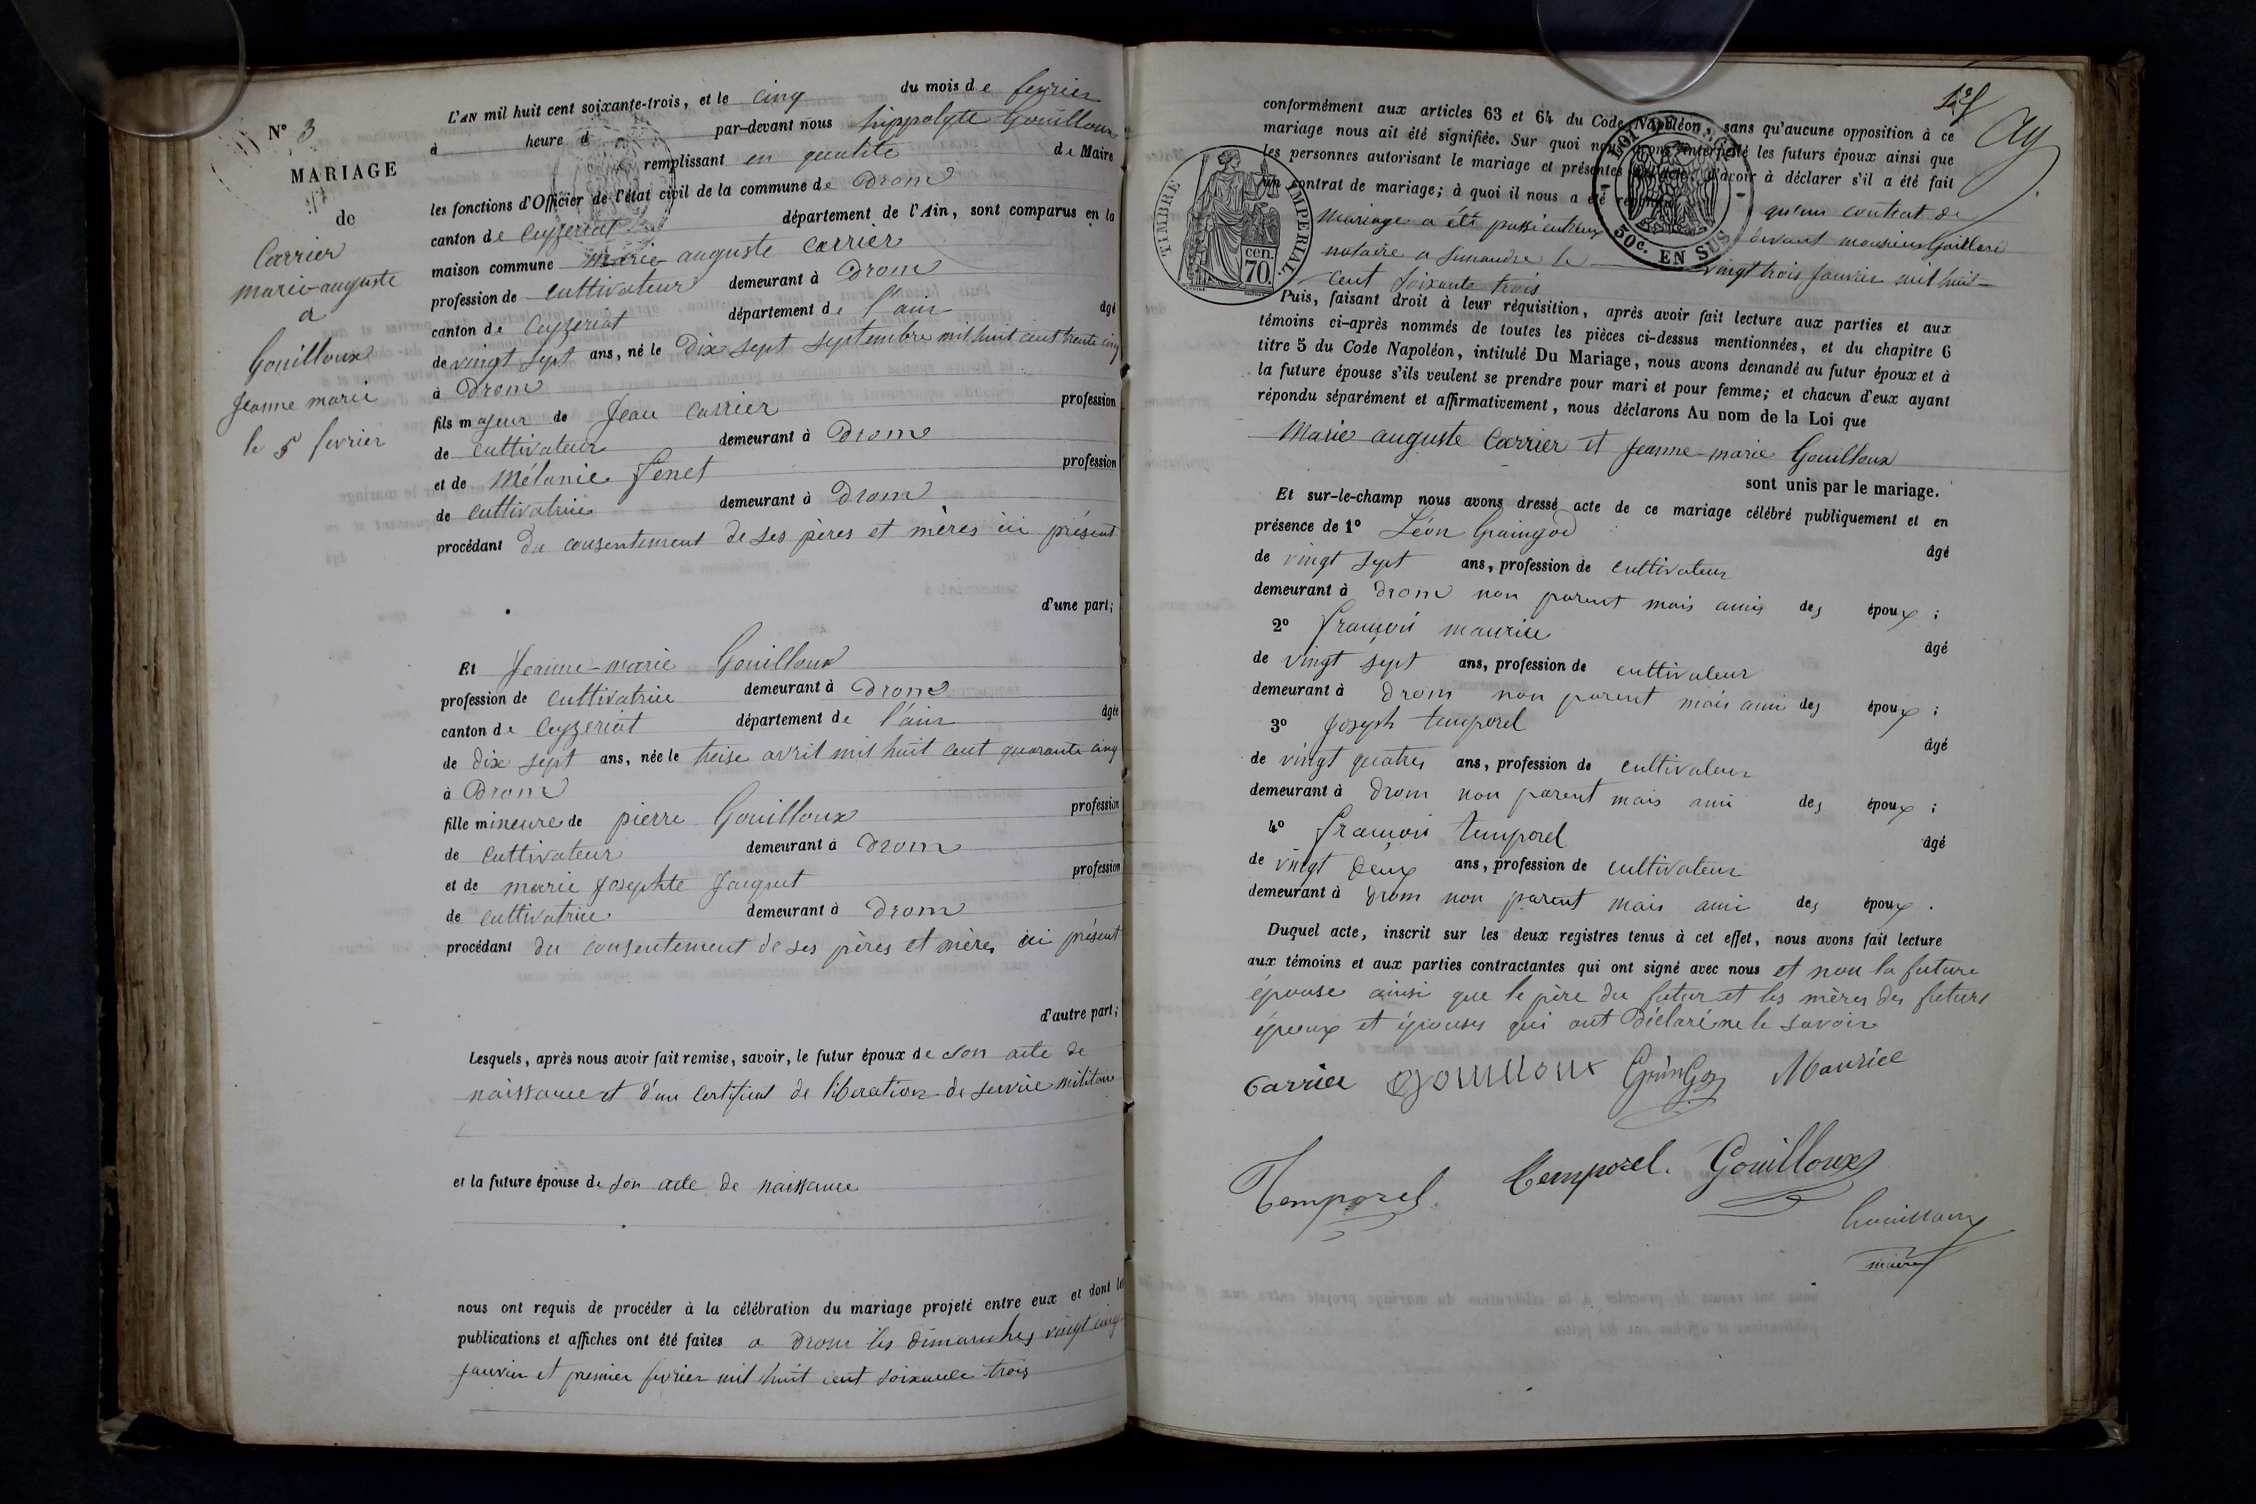 N° 3
MARIAGE
de
Carrier
marie-auguste
a
Gouilloux
Jeanne marie
le 5 fevrier
L'AN mil huit cent soixante-trois, et le cinq du mois de fevrier
à heure d par-devant nous hippolyte Gouilloux
remplissant en qualité de Maire
les fonctions d'Officier de l'état civil de la commune de Drom
canton de Ceyzeriat département de l'Ain, sont comparus en la
maison commune marie auguste Carrier
profession de cultivateur demeurant à Drom
canton de Ceyzeriat département de l'ain âgé
de vingt sept ans, né le Dix sept septembre mil huit cent trente cinq
à Drom
fils majeur de Jean Carrier profession
de cultivateur demeurant à Drom
et de Mélanie fenet profession
de cultivatrice demeurant à Drom
procédant du consentement de ses pères et mères ici présent
d'une part;
Et Jeanne-marie Gouilloux
profession de cultivatrice demeurant à Drom
canton de Ceyzeriat département de l'ain âgée
de dix sept ans, née le treise avril mil huit cent quarante cinq
à Drom
fille mineure de pierre Gouilloux profession
de cultivateur demeurant à Drom
et de marie Josephte Jacquet profession
de cultivatrice demeurant à Drom
procédant du consentement de ses pères et mères ici présent
d'autre part;
Lesquels, après nous avoir fait remise, savoir, le futur époux de son acte de
naissance et d'un certificat de liberation de service militaire
et la future épouse de son acte de naissance
nous ont requis de procéder à la célébration du mariage projeté entre eux et dont les
publications et affiches ont été faites a Drom les dimanches vingt cinq
janvier et premier fevrier mil huit cent soixante trois
conformément aux articles 63 et 64 du Code Napoléon, sans qu'aucune opposition à ce
mariage nous ait été signifiée. Sur quoi nous avons interpellé les futurs époux ainsi que
les personnes autorisant le mariage et présentes d'avoir à déclarer s'il a été fait
un contrat de mariage; à quoi il nous a été répondu qu'un contrat de
mariage a été passé entreux devant monsieur Gaillard
notaire a Simandre le vingt trois Janvier mil huit
cent soixante trois
TIMBRE IMPERIAL
cen.
70.
50c. EN SUS
Puis, faisant droit à leur réquisition, après avoir fait lecture aux parties et aux
témoins ci-après nommés de toutes les pièces ci-dessus mentionnées, et du chapitre 6
titre 5 du Code Napoléon, intitulé Du Mariage, nous avons demandé au futur époux et à
la future épouse s'ils veulent se prendre pour mari et pour femme; et chacun d'eux ayant
répondu séparément et affirmativement, nous déclarons Au nom de la Loi que
Marie auguste Carrier et Jeanne-marie Gouilloux
sont unis par le mariage.
Et sur-le-champ nous avons dressé acte de ce mariage célébré publiquement et en
présence de 1° Léon Graingod âgé
de vingt sept ans, profession de cultivateur
demeurant à Drom non parent mais amis des époux;
2° françois maurice âgé
de vingt sept ans, profession de cultivateur
demeurant à Drom non parent mais ami des époux;
3° Joseph temporel âgé
de vingt quatres ans, profession de cultivateur
demeurant à Drom non parent mais ami des époux;
4° françois temporel âgé
de vingt deux ans, profession de cultivateur
demeurant à Drom non parent mais ami des époux.
Duquel acte, inscrit sur les deux registres tenus à cet effet, nous avons fait lecture
aux témoins et aux parties contractantes qui ont signé avec nous et non la future
épouse ainsi que le père du futur et les mères des futurs
époux et épouses qui ont Déclaré ne le savoir
Carrier Gouilloux Maurice
Temporel Temporel. Gouilloux
Gouilloux
maire